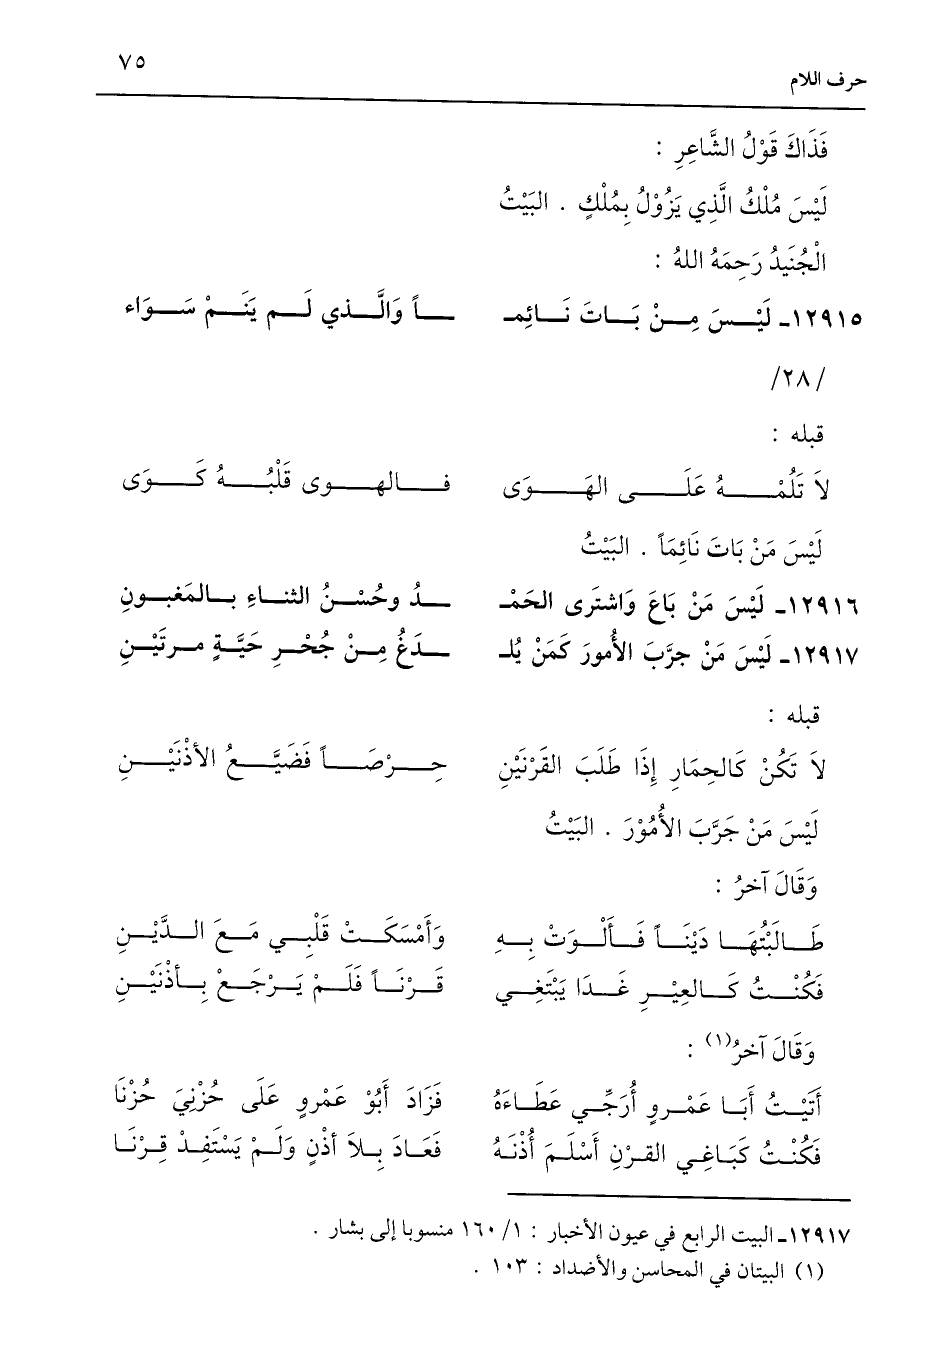 ٧٥
حرف اللام
فَذَاكَ قَوْلُ الشَّاعِرِ :
لَيْسَ مُلْكُ الَّذِي يَزُوْلُ بِمُلْكٍ . البَيْتُ
الْجُنَيدُ رَحِمَهُ اللهُ :
١٢٩١٥ـ لَيْـــسَ مِـــنْ بَـــاتَ نَـــائِمـ ـــاً وَالَّـــذي لَـــم يَنَـــمْ سَـــوَاء
/٢٨/
قبله :
لاَ تَلُمْـــهُ عَلَـــى الهَـــوَى فـــالهـــوى قَلْبُـــهُ كَـــوَى
لَيْسَ مَنْ بَاتَ نَائِمَاً . البَيْتُ
١٢٩١٦ـ لَيْسَ مَنْ بَاعَ وَاشتَرى الحَمْـ ـــدُ وحُسْـــنُ الثنـــاءِ بـــالمَغبـــونِ
١٢٩١٧ـ لَيْسَ مَنْ جرَّبَ الأُمورَ كَمَنْ يُلـ ـــدَغُ مِـــنْ جُحْـــرِ حَيَّـــةٍ مـــرتَيْـــنِ
قبله :
لاَ تَكُنْ كَالحِمَارِ إِذَا طَلَبَ القَرْنَيْنِ حِـــرْصَـــاً فَضَيَّـــعُ الأذْنَيْـــنِ
لَيْسَ مَنْ جَرَّبَ الأُمُوْرَ . البَيْتُ
وَقَالَ آخرُ :
طَـــالَبْتُهَـــا دَيْنَـــاً فَـــأَلْـــوَتْ بِـــهِ وَأَمْسَكَـــتْ قَلْبِـــي مَـــعَ الـــدَّيْـــنِ
فَكُنْـــتُ كَـــالعِيْـــرِ غَـــدَا يَبْتَغِـــي قَـــرْنَـــاً فَلَـــمْ يَـــرْجَـــعْ بِـــأذْنَيْـــنِ
وَقَالَ آخرُ(١) :
أَتَيْـــتُ أَبَـــا عَمْـــروٍ أُرَجِّـــي عَطَـــاءَهُ فَزَادَ أَبُوْ عَمْروٍ عَلَى حُزْنِيَ حُزْنَا
فَكُنْـــتُ كَبَـــاغِـــي القـــرْنِ أَسْلَـــمَ أُذْنَـــهُ فَعَـــادَ بِـــلاَ أذْنٍ وَلَـــمْ يَسْتَفِـــدْ قِـــرْنَـــا
١٢٩١٧ـ البيت الرابع في عيون الأخبار : ١/ ١٦٠ منسوبا إلى بشار .
(١) البيتان في المحاسن والأضداد : ١٠٣ .